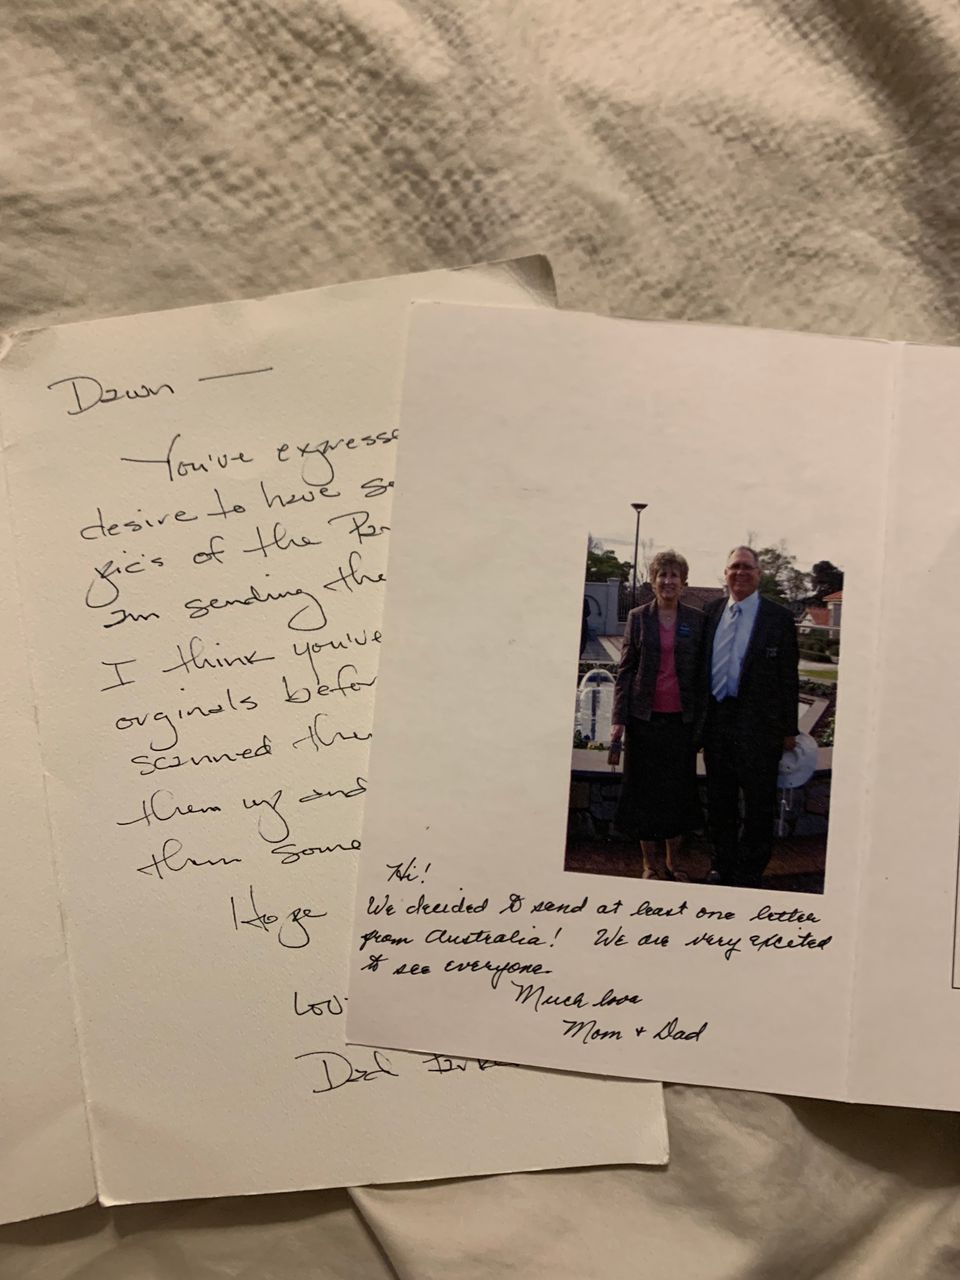 Dawn —
You've express
desire to have
pic's of the
I'm sending the
I think you've
orginals befor
scanned the
them up and
them some
Hope
Lov
Dad
Hi!
We decided to send at least one letter
from Australia! We are very excited
to see everyone.
Much love
Mom + Dad